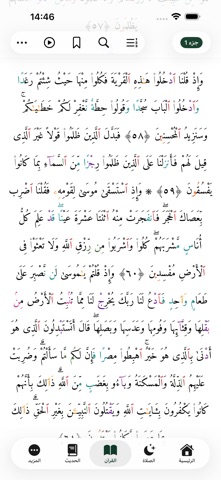 14:46
يَظْلِمُونَ ﴿٥٧﴾
جزء 1
وَإِذْ قُلْنَا ٱدْخُلُوا۟ هَـٰذِهِ ٱلْقَرْيَةَ فَكُلُوا۟ مِنْهَا حَيْثُ شِئْتُمْ رَغَدًا
وَٱدْخُلُوا۟ ٱلْبَابَ سُجَّدًا وَقُولُوا۟ حِطَّةٌ نَّغْفِرْ لَكُمْ خَطَـٰيَـٰكُمْ ۚ
وَسَنَزِيدُ ٱلْمُحْسِنِينَ ﴿٥٨﴾ فَبَدَّلَ ٱلَّذِينَ ظَلَمُوا۟ قَوْلًا غَيْرَ ٱلَّذِى
قِيلَ لَهُمْ فَأَنزَلْنَا عَلَى ٱلَّذِينَ ظَلَمُوا۟ رِجْزًا مِّنَ ٱلسَّمَآءِ بِمَا كَانُوا۟
يَفْسُقُونَ ﴿٥٩﴾ ۞ وَإِذِ ٱسْتَسْقَىٰ مُوسَىٰ لِقَوْمِهِۦ فَقُلْنَا ٱضْرِب
بِّعَصَاكَ ٱلْحَجَرَ ۖ فَٱنفَجَرَتْ مِنْهُ ٱثْنَتَا عَشْرَةَ عَيْنًا ۖ قَدْ عَلِمَ كُلُّ
أُنَاسٍ مَّشْرَبَهُمْ ۖ كُلُوا۟ وَٱشْرَبُوا۟ مِن رِّزْقِ ٱللَّهِ وَلَا تَعْثَوْا۟ فِى
ٱلْأَرْضِ مُفْسِدِينَ ﴿٦٠﴾ وَإِذْ قُلْتُمْ يَـٰمُوسَىٰ لَن نَّصْبِرَ عَلَىٰ
طَعَامٍ وَٰحِدٍ فَٱدْعُ لَنَا رَبَّكَ يُخْرِجْ لَنَا مِمَّا تُنۢبِتُ ٱلْأَرْضُ مِنۢ
بَقْلِهَا وَقِثَّآئِهَا وَفُومِهَا وَعَدَسِهَا وَبَصَلِهَا ۖ قَالَ أَتَسْتَبْدِلُونَ ٱلَّذِى هُوَ
أَدْنَىٰ بِٱلَّذِى هُوَ خَيْرٌ ۚ ٱهْبِطُوا۟ مِصْرًا فَإِنَّ لَكُم مَّا سَأَلْتُمْ ۗ وَضُرِبَتْ
عَلَيْهِمُ ٱلذِّلَّةُ وَٱلْمَسْكَنَةُ وَبَآءُو بِغَضَبٍ مِّنَ ٱللَّهِ ۗ ذَٰلِكَ بِأَنَّهُمْ
كَانُوا۟ يَكْفُرُونَ بِـَٔايَـٰتِ ٱللَّهِ وَيَقْتُلُونَ ٱلنَّبِيِّـۧنَ بِغَيْرِ ٱلْحَقِّ ۗ ذَٰلِكَ
الرئيسية
الصلاة
القرآن
الحديث
المزيد